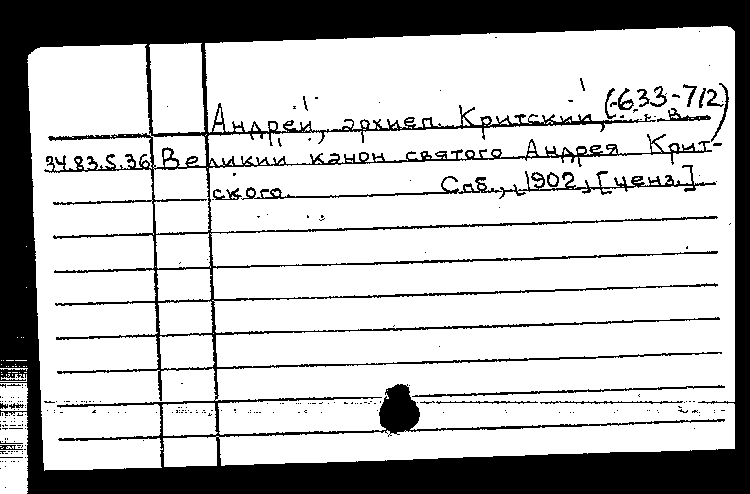 Андрей, архиеп. Критский, (-633-712)
34.83.5.36 Великий канон святого Андрея Крит-
ского. Спб., 1902, [ценз.]